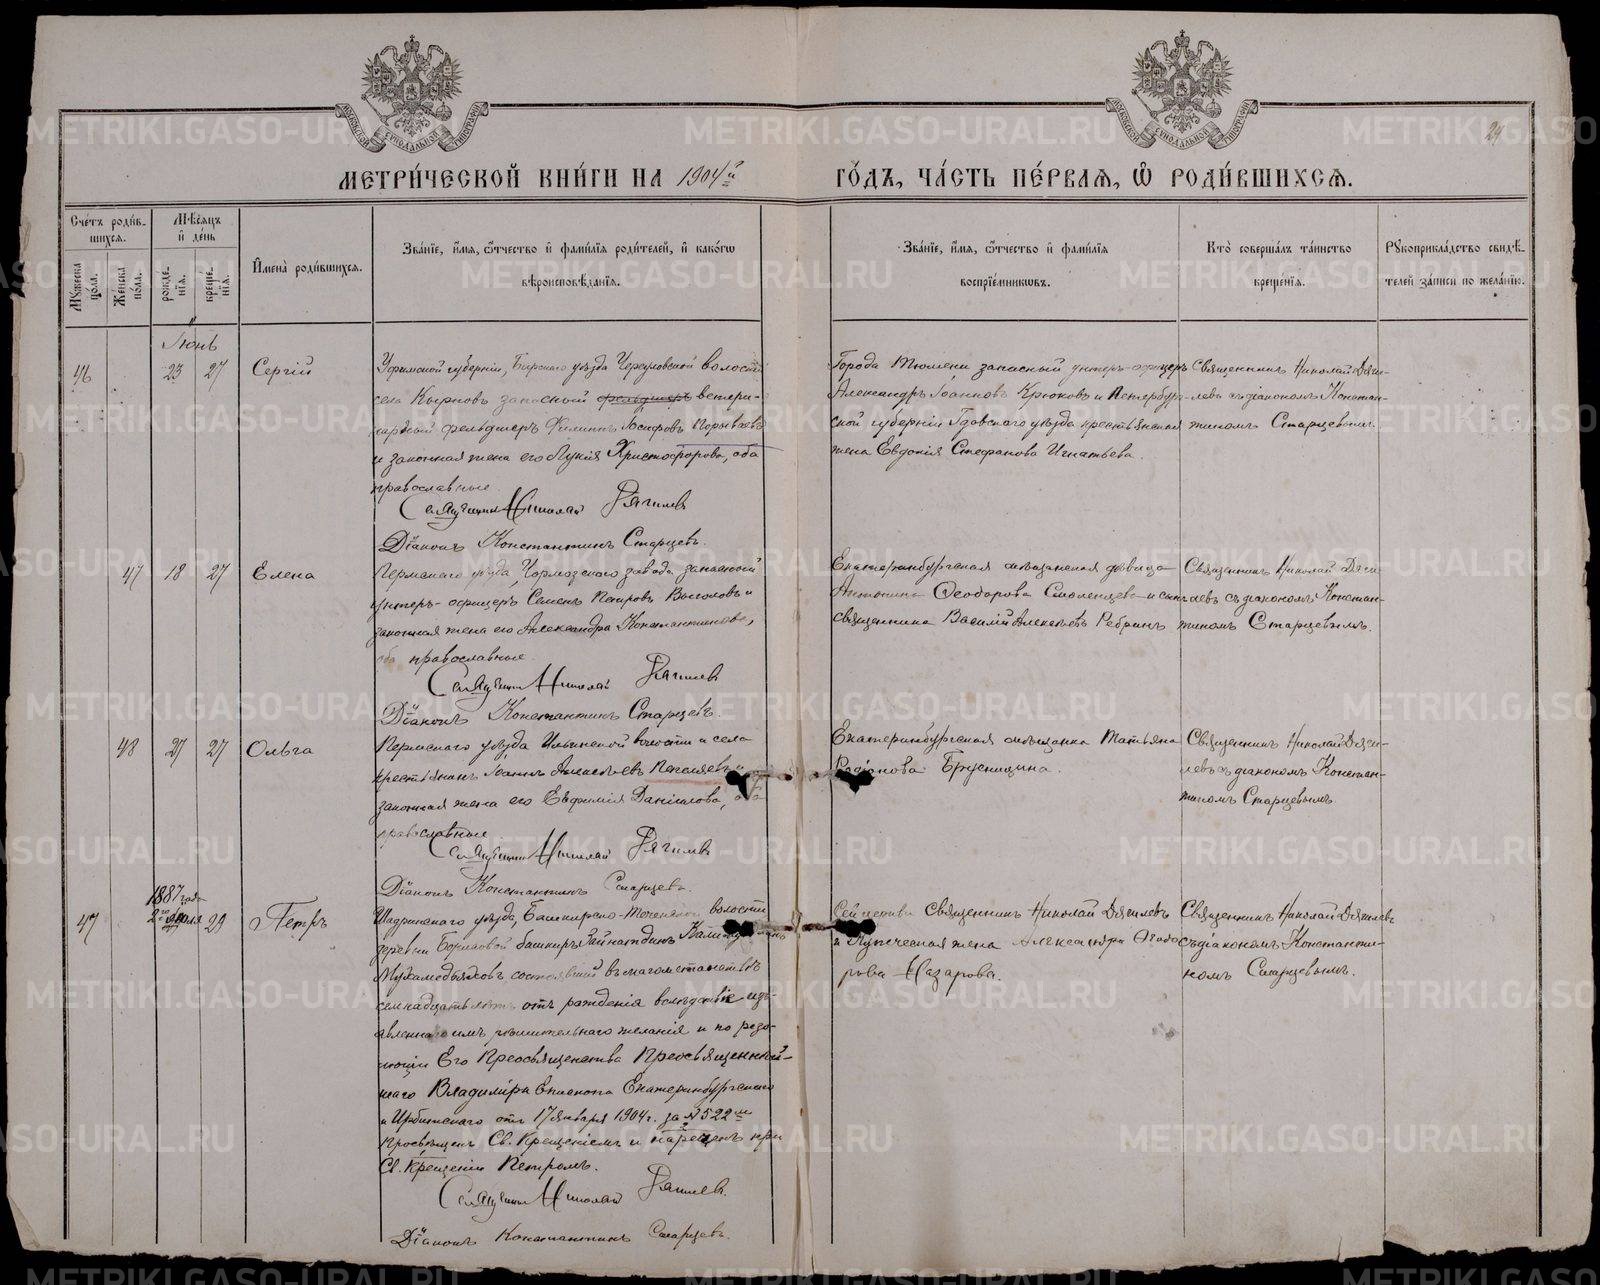 МОСКОВСКОЙ СѴНОДАЛЬНОЙ ТИПОГРАФІИ
МОСКОВСКОЙ СѴНОДАЛЬНОЙ ТИПОГРАФІИ
24
МЕТРИ́ЧЕСКОЙ КНИ́ГИ НА 1904й
ГО́ДЪ, ЧА́СТЬ ПЕ́РВАЯ, Ѡ РОДИ́ВШИХСЯ.
Сче́тъ роди́в-
шихся.
Му́жеска по́ла.
Же́нска по́ла.
Мѣ́сяцъ и де́нь
рожде-нїя.
креще-нїя.
И҆мена̀ роди́вшихся.
Зва́нїе, и҆́мя, ѻ҆́тчество и҆ фами́лїя роди́телей, и҆ како́гѡ
вѣроисповѣ́данїя.
Зва́нїе, и҆́мя, ѻ҆́тчество и҆ фами́лїя
воспрїе́мникѡвъ.
Кто̀ соверша́лъ та́инство
креще́нїя.
Рꙋкоприкла́дство свидѣ́-
телей за́писи по жела́нїю.
Іюнь
46 23 27 Сергій
Уфимской губерніи, Бирскаго уѣзда волости
села запасный фельдшеръ ветери-
нарный фельдшеръ Филиппъ Іосифовъ
и законная жена его Лукія Христофорова, оба
православные
Священникъ Николай Дягилевъ
Діаконъ Константинъ Старцевъ.
Города Тюмени запасный унтеръ-офицеръ
Александръ Іоанновъ Крюковъ и Петербург-
ской губерніи Гдовскаго уѣзда крестьянская
жена Евдокія Стефанова Игнатьева.
Священникъ Николай Дяги-
левъ съ діакономъ Констан-
тиномъ Старцевымъ.
47 18 27 Елена
Пермскаго уѣзда, Чермозскаго завода запасной
унтеръ-офицеръ Семенъ Петровъ и
законная жена его Александра Константинова,
оба православные.
Священникъ Николай Дягилевъ
Діаконъ Константинъ Старцевъ.
Екатеринбургская мѣщанская дѣвица
Антонина Ѳеодорова и сынъ
священника Василій Алексѣевъ Ребринъ
Священникъ Николай Дяги-
левъ съ діакономъ Констан-
тиномъ Старцевымъ.
48 27 27 Ольга
Пермскаго уѣзда Ильинской волости и села
крестьянинъ Іоаннъ Алексѣевъ и
законная жена его Евфимія Даніилова, оба
православные
Священникъ Николай Дягилевъ
Діаконъ Константинъ Старцевъ.
Екатеринбургская мѣщанка Татьяна
Родіонова Брусницина.
Священникъ Николай Дяги-
левъ съ діакономъ Констан-
тиномъ Старцевымъ
1887 года
47 2го 29 Петръ
Шадринскаго уѣзда, Башкирско-Теченской волости
деревни башкиръ
состоявшій въ магометанствѣ
семнадцать лѣтъ отъ рожденія вслѣдствіе изъ-
явленнаго имъ рѣшительнаго желанія и по резо-
люціи Его Преосвященства Преосвященнѣй-
шаго Владиміра Епископа Екатеринбургскаго
и Ирбитскаго отъ 17 января 1904 г. за № 522м
просвѣщенъ Св. Крещеніемъ и нареченъ при
Св. Крещеніи Петромъ.
Священникъ Николай Дягилевъ.
Діаконъ Константинъ Старцевъ.
Сей церкви Священникъ Николай Дягилевъ
и Купеческая жена Александра Ѳеодо-
рова Назарова.
Священникъ Николай Дягилевъ
съ діакономъ Константи-
номъ Старцевымъ.
METRIKI.GASO-URAL.RU